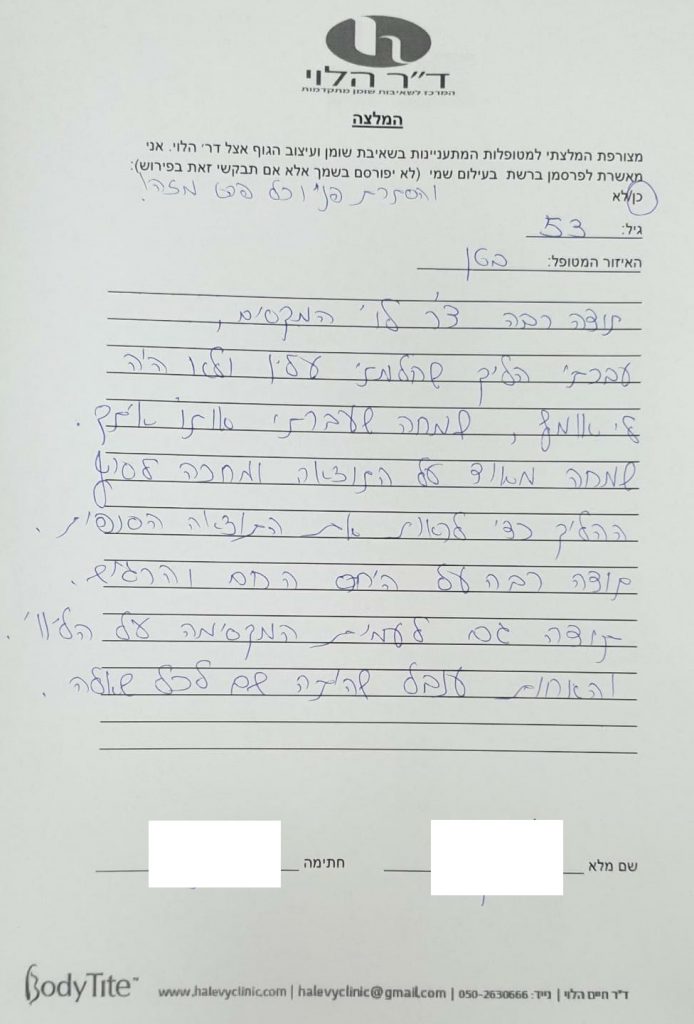 ד״ר הלוי
המרכז לשאיבות שומן מתקדמות
המלצה
מצורפת המלצתי למטופלות המתעניינות בשאיבת שומן ועיצוב הגוף אצל דר׳ הלוי. אני
מאשרת לפרסמן ברשת בעילום שמי (לא יפורסם בשמך אלא אם תבקשי זאת בפירוש):
כן/לא והסתרת פניי וכל פרט מזהה!
גיל: 53
האיזור המטופל: בטן
תודה רבה ד״ר לוי המקסים,
עברתי הליך שחלמתי עליו ולא היה
לי אומץ, שמחה שעברתי אותו איתך.
שמחה מאוד על התוצאה ומחכה לסוף
ההליך כדי לראות את התוצאה הסופית.
תודה רבה על היחס החם והרגיש.
תודה גם לעמית המקסימה על הליווי.
והאחות ענבל שהיתה שם לכל שאלה.
שם מלא חתימה
BodyTite™ www.halevyclinic.com | halevyclinic@gmail.com | 050-2630666 :ד״ר חיים הלוי | נייד